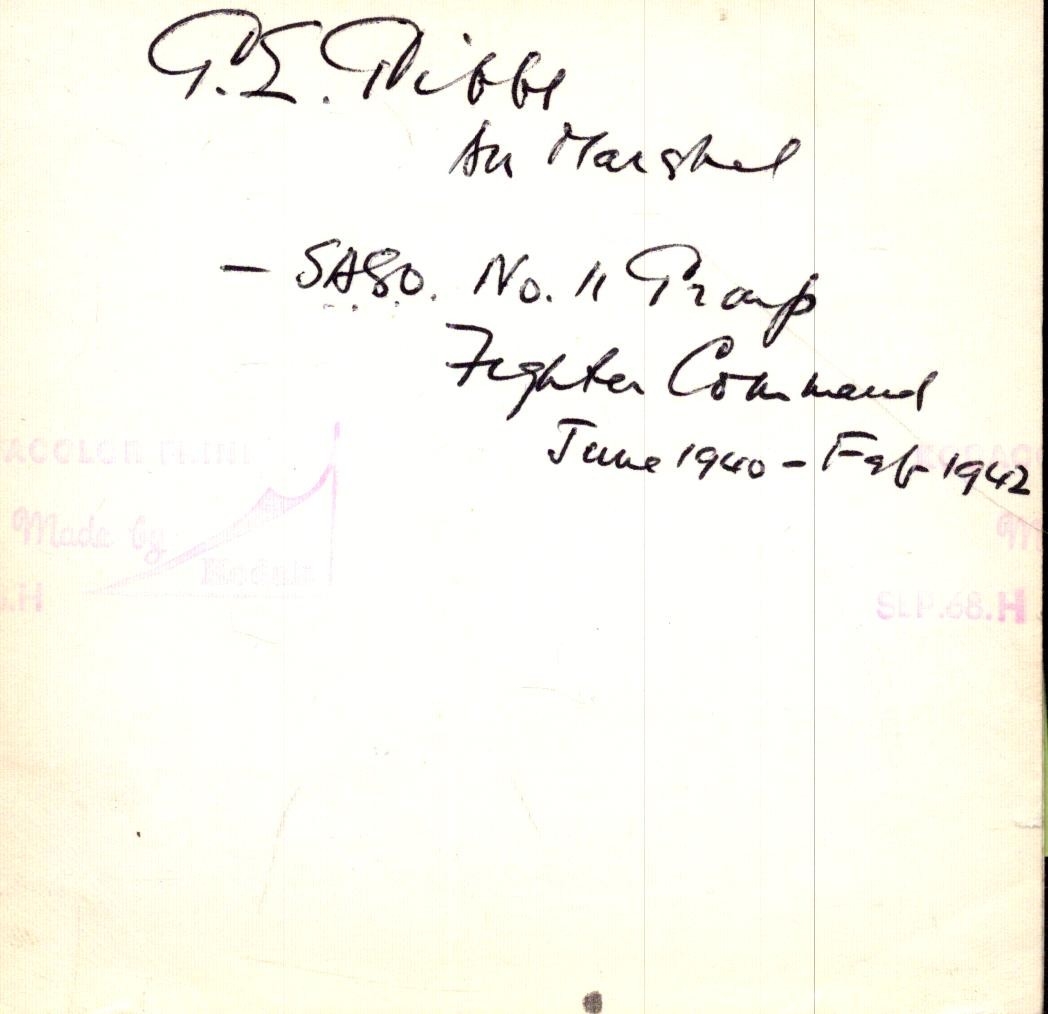 G.E. Gibbs
Air Marshal
– SASO. No. 11 Group
Fighter Command
June 1940 – Feb 1942
ACOLOR PRINT
Made by
Kodak
.H
KODAC
M
SLP.68.H